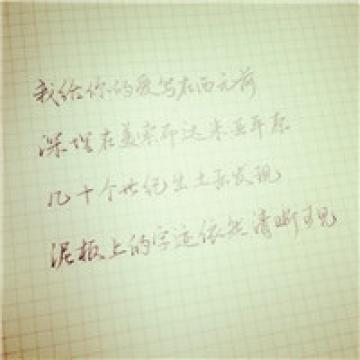 我给你的爱写在西元前
深埋在美索不达米亚平原
几十个世纪出土后发现
泥板上的字迹依然清晰可见